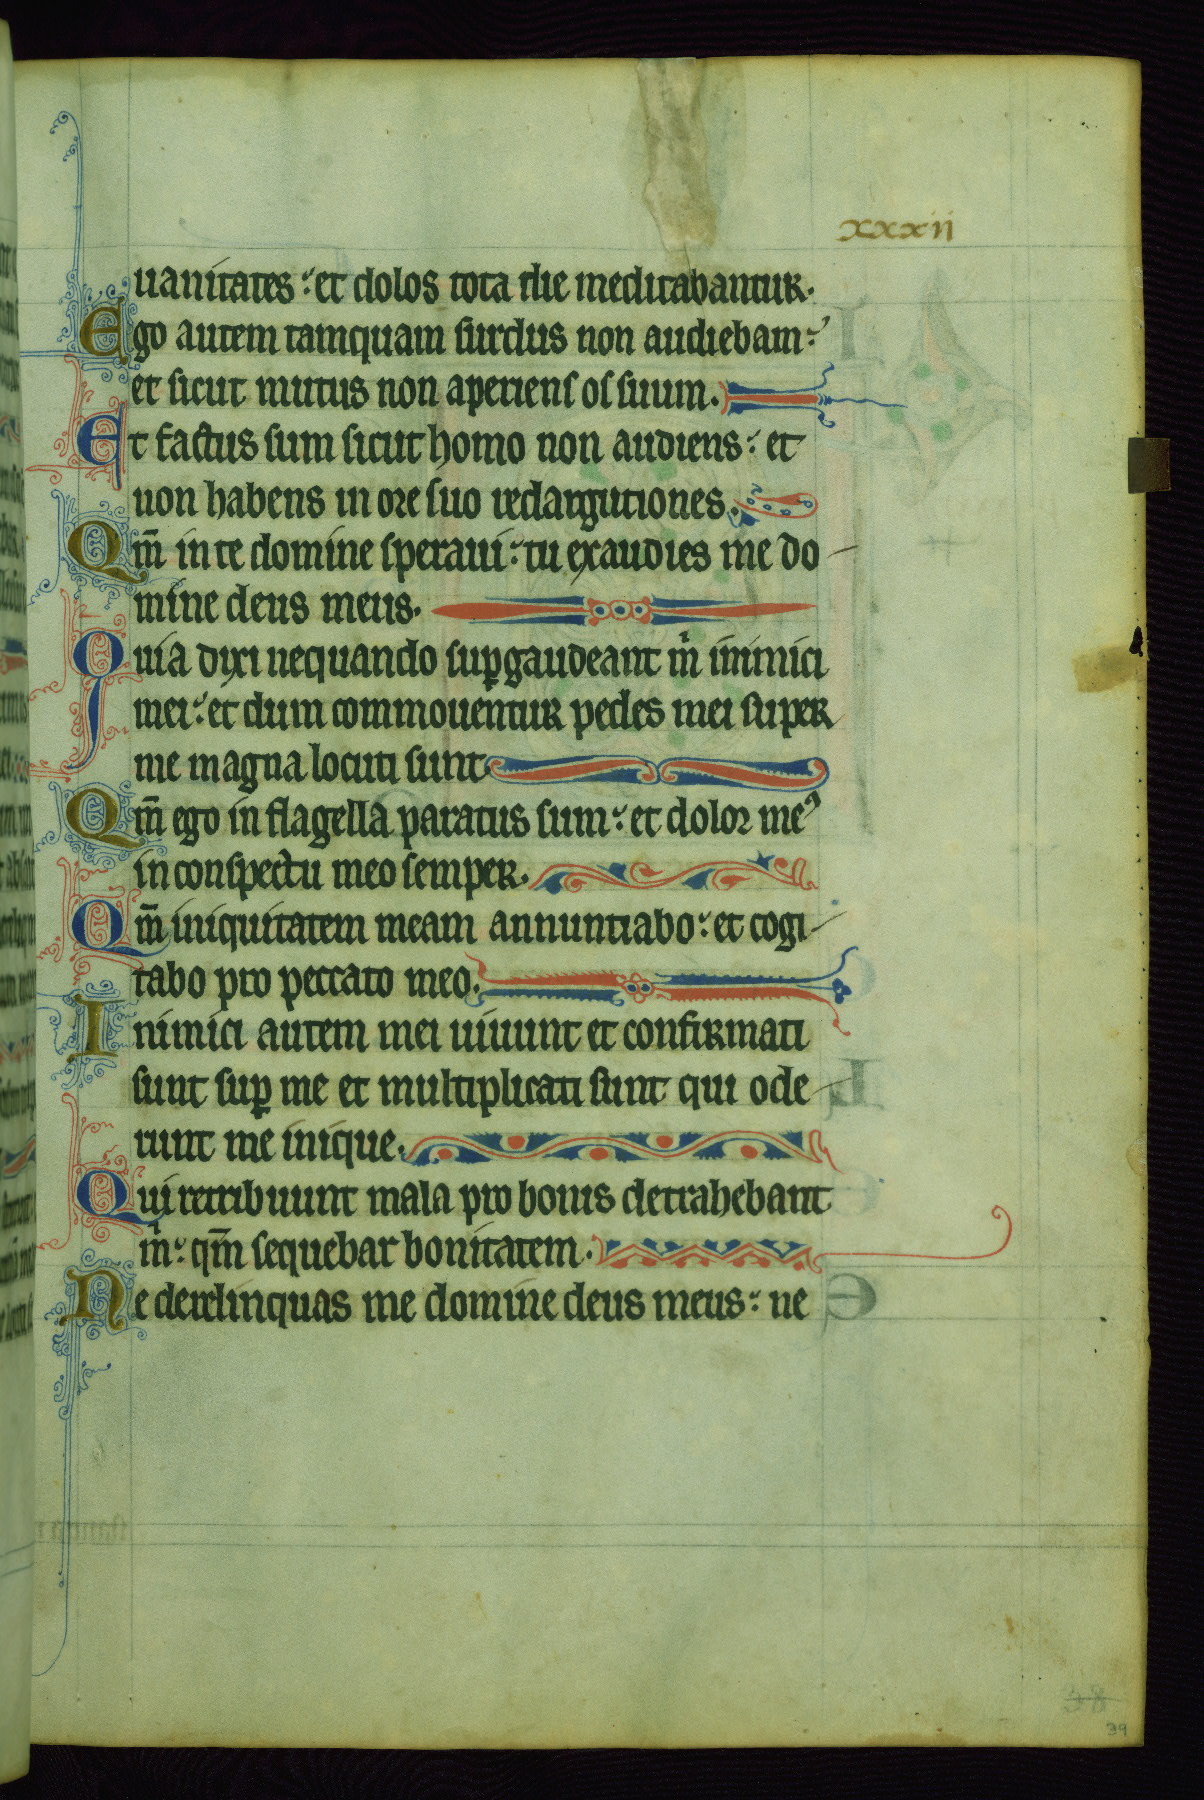 xxxii
uanitates : et dolos tota die meditabantur.
Ego autem tamquam surdus non audiebam :
et sicut mutus non aperiens os suum.
Et factus sum sicut homo non audiens : et
non habens in ore suo redargutiones.
Qm̄ in te domine speraui : tu exaudies me do
mine deus meus.
Quia dixi nequando suꝑgaudeant m̍ inimici
mei : et dum commouentur pedes mei super
me magna locuti sunt
Qm̄ ego in flagella paratus sum : et dolor meꝰ
in conspectu meo semper.
Qm̄ iniquitatem meam annuntiabo : et cogi
tabo pro peccato meo.
Inimici autem mei uiuunt et confirmati
sunt suꝑ me et multiplicati sunt qui ode
runt me inique.
Qui retribuunt mala pro bonis detrahebant
m̍ : qm̄ sequebar bonitatem.
Ne derelinquas me domine deus meus : ne
38
39